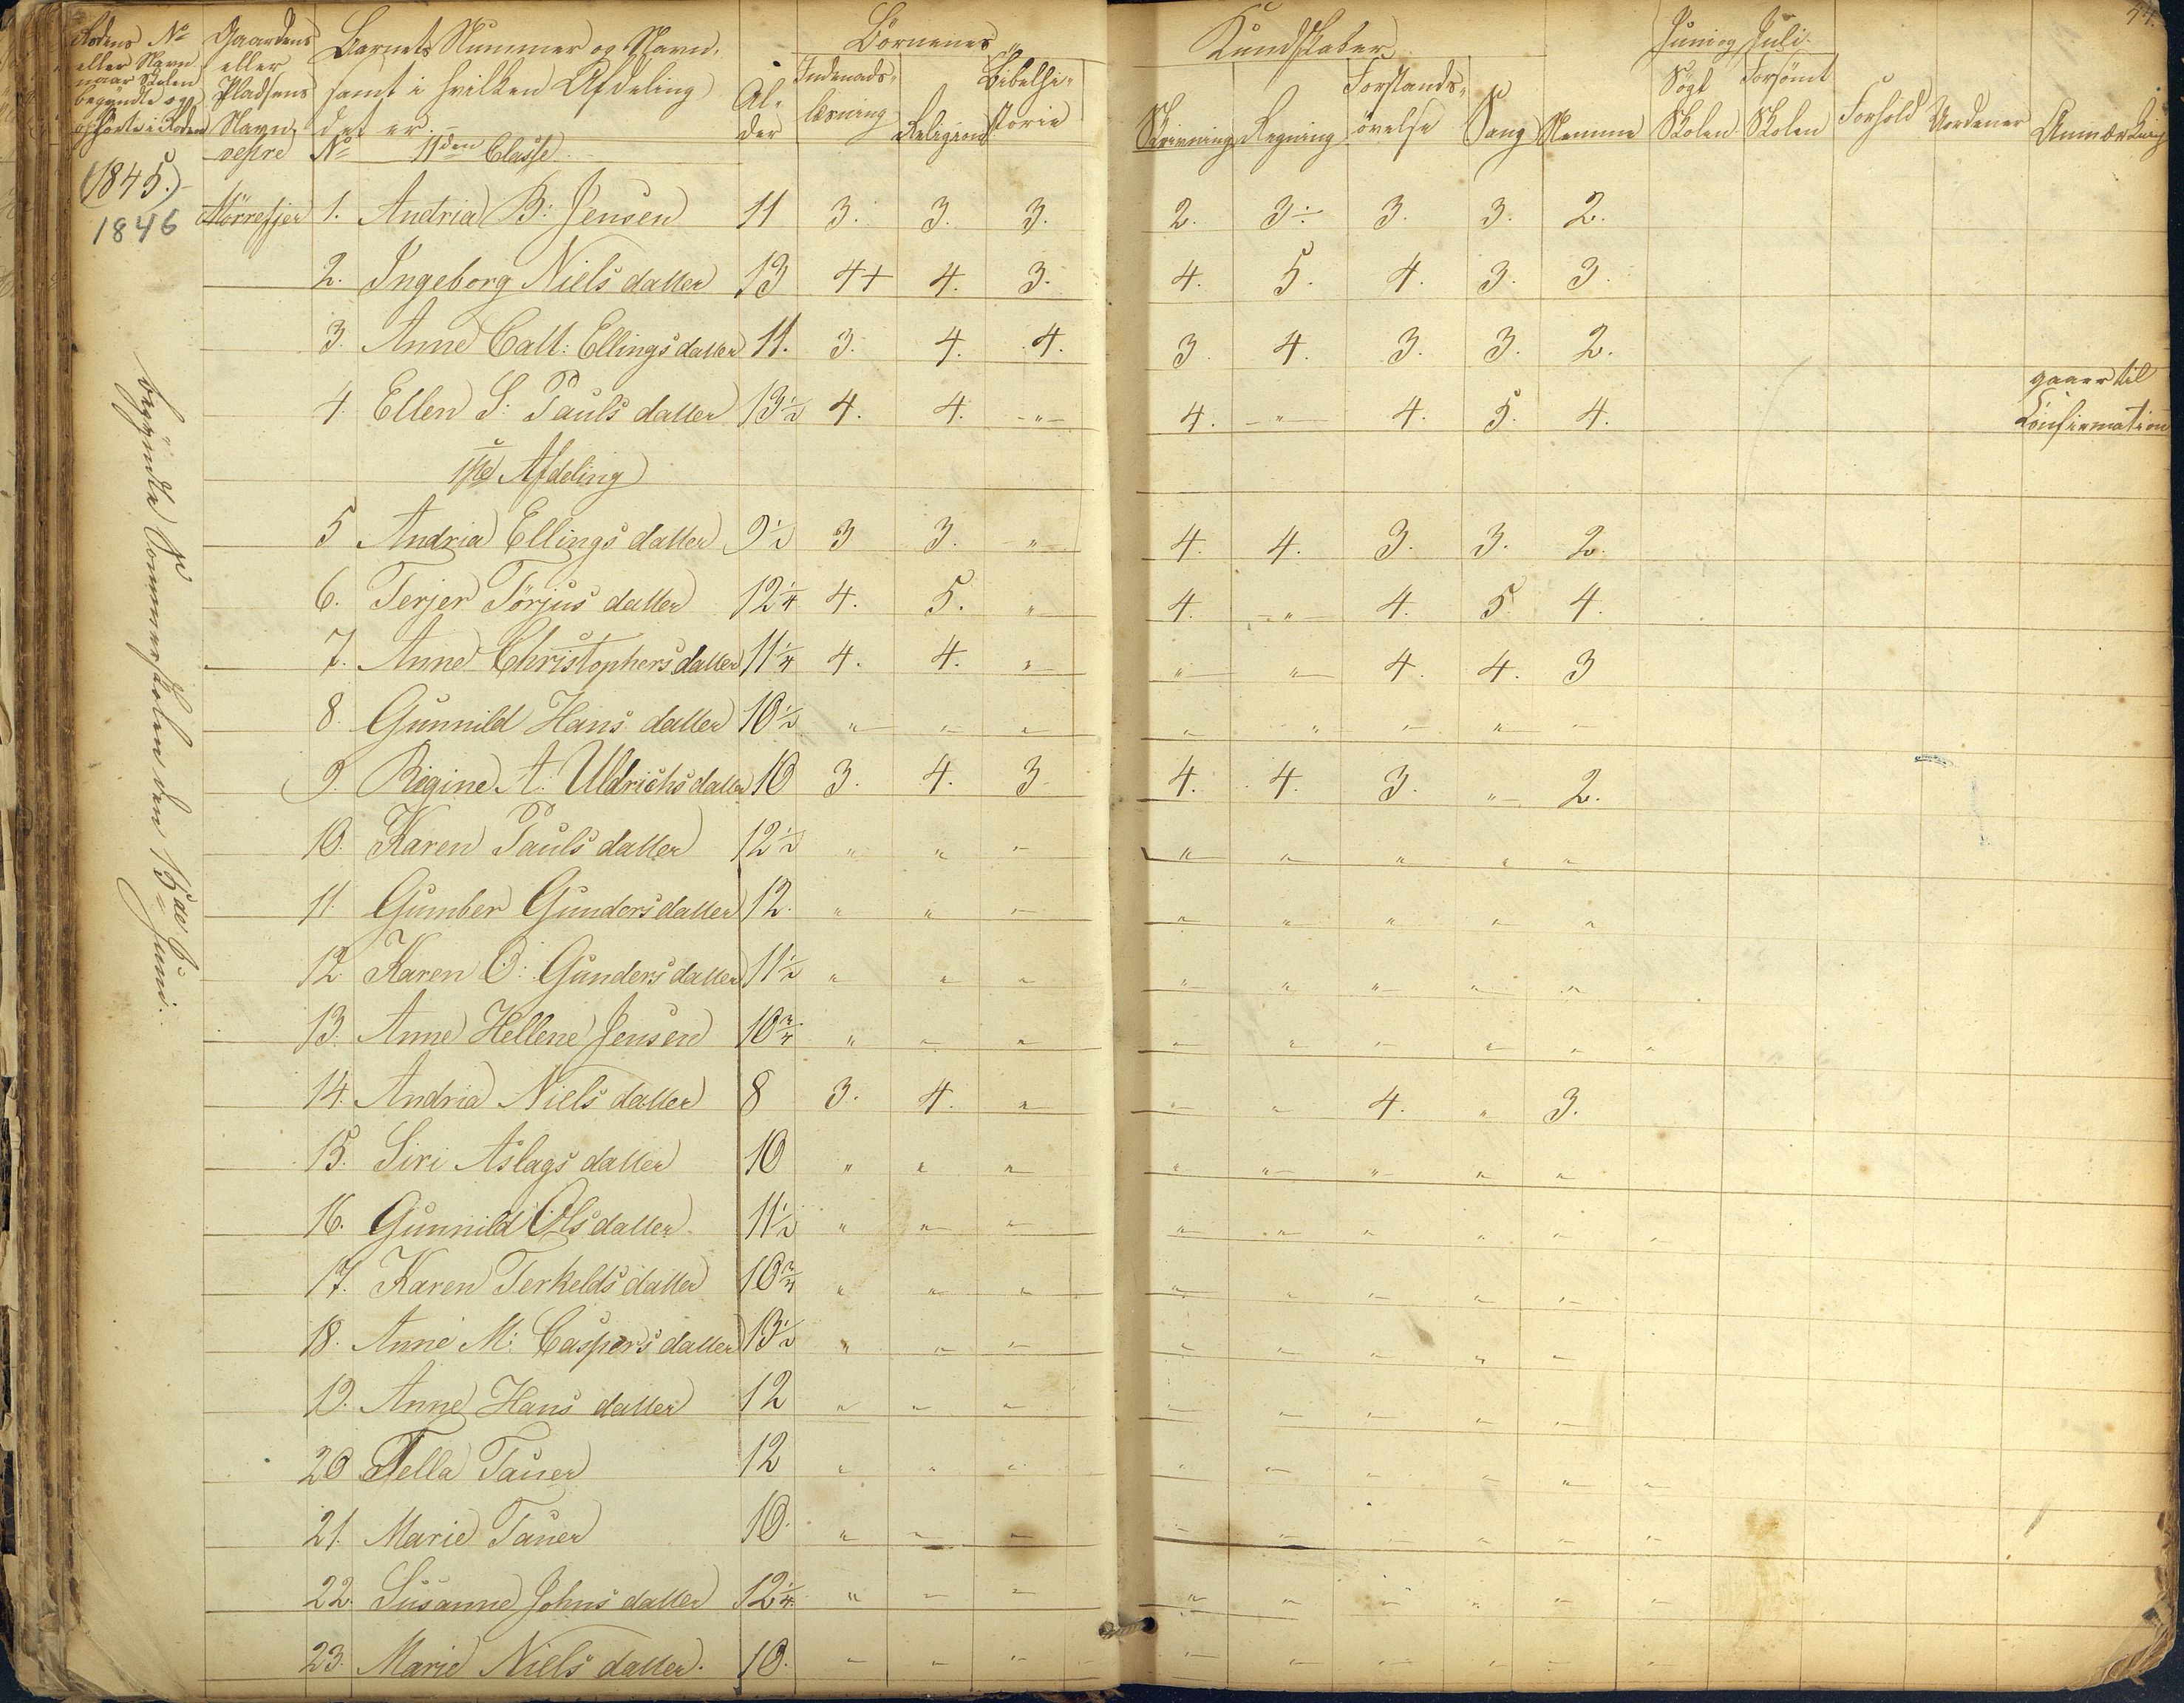 Rodens No eller Navn naar Skolen begyndte og ophörte i Roden
Gaardens eller Pladsens Navn
Barnets Nummer og Navn, samt i hvilken Afdeling det er
Alder
Börnenes Kundskaber
Indenadslæsning Religion Bibelhistorie Skrivning Regning Forstandsövelse Sang Nemme
Juni og Juli
Sögt Skolen Forsömt Skolen Forhold Anmærkning
44.
No 11den Classe
(1845.)
1846
vestre
Nörrefjer 1. Andria B: Jensen 11 3. 3. 3. 2. 3÷ 3. 3. 2.
2. Ingeborg Niels datter 13 4+ 4. 3. 4. 5. 4. 3. 3.
3. Anne Catt: Ellings datter 11. 3. 4. 4. 3. 4. 3. 3. 2.
4. Ellen S: Pauls datter 13½ 4. 4. -"- 4. -"- 4. 5. 4. gaaer til Confirmation
1ste Afdeling
5 Andria Ellings datter 9½ 3 3. " 4. 4. 3. 3. 2.
6. Terjer Törjus datter 12¼ 4. 5. " 4. -"- 4. 5 4.
7. Anne Christophers datter 11¼ 4. 4. " " " 4. 4. 3
8. Gunnild Hans datter 10½ " " " " " " " "
9. Regine A. Uldrichs datter 10 3. 4. 3 4. 4. 3. " 2.
10. Karen Pauls datter 12½ " " " " " " " "
11. Gumber Gunders datter 12. " " " " " " " "
12. Karen O: Gunders datter 11½ " " " " " " " "
13. Anne Hellene Jensen 10¾ " " " " " " " " "
14. Andria Niels datter 8 3. 4. " " " 4. " 3.
15. Siri Aslags datter 10 " " " " " " " "
16. Gunnild Ols datter 11½ " " " " " " " " "
17. Karen Terkelds datter 10¾ " " " " " " " "
18. Anne M: Caspers datter 13½ " " " " " " " "
19. Anne Hans datter 12 " " " " " " " "
20 Tella Tauer 12 " " " " " " " " "
21. Marie Tauer 10. " " " " " " " " "
22. Susanne Johns datter 12¼ " " " " " " " " "
23. Marie Niels datter. 10. " " " " " " " " "
begyndte Sommerskolen den 15de Juni.